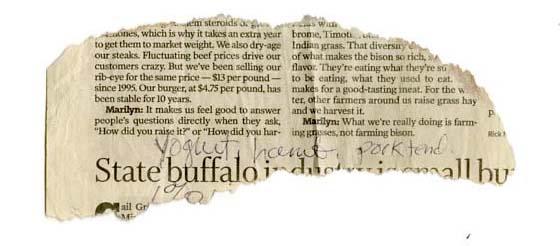 them steroids or
mones, which is why it takes an extra year
to get them to market weight. We also dry-age
our steaks. Fluctuating beef prices drive our
customers crazy. But we've been selling our
rib-eye for the same price — $13 per pound —
since 1995. Our burger, at $4.75 per pound, has
been stable for 10 years.
Marilyn: It makes us feel good to answer
people's questions directly when they ask,
"How did you raise it?" or "How did you har-
with
brome, Timot
Indian grass. That diversity
of what makes the bison so rich,
flavor. They're eating what they're su
to be eating, what they used to eat.
makes for a good-tasting meat. For the w
ter, other farmers around us raise grass hay
and we harvest it.
Marilyn: What we're really doing is farm-
ing grasses, not farming bison.
P
Rick
Yoghurt, pork tend.
State buffalo industry is small bu
ail Gr